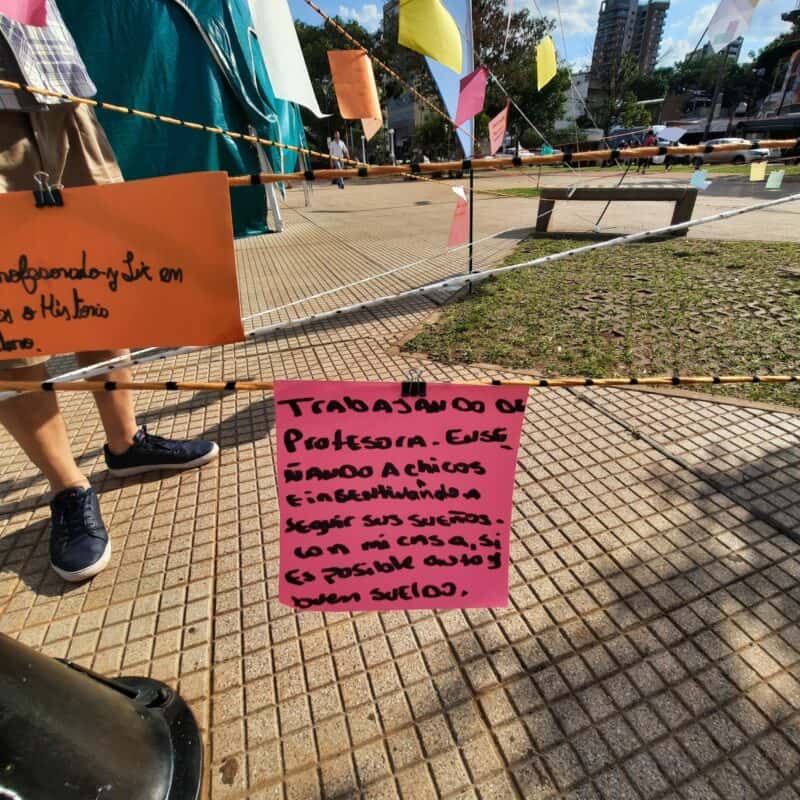 Profesorado y Lic en
o Historia
TRABAJANDO DE
Profesora. ENSE-
ÑANDO A chicos
E insentivando a
seguir sus sueños.
con mi casa, si
Es posible auto y
buen sueldo.